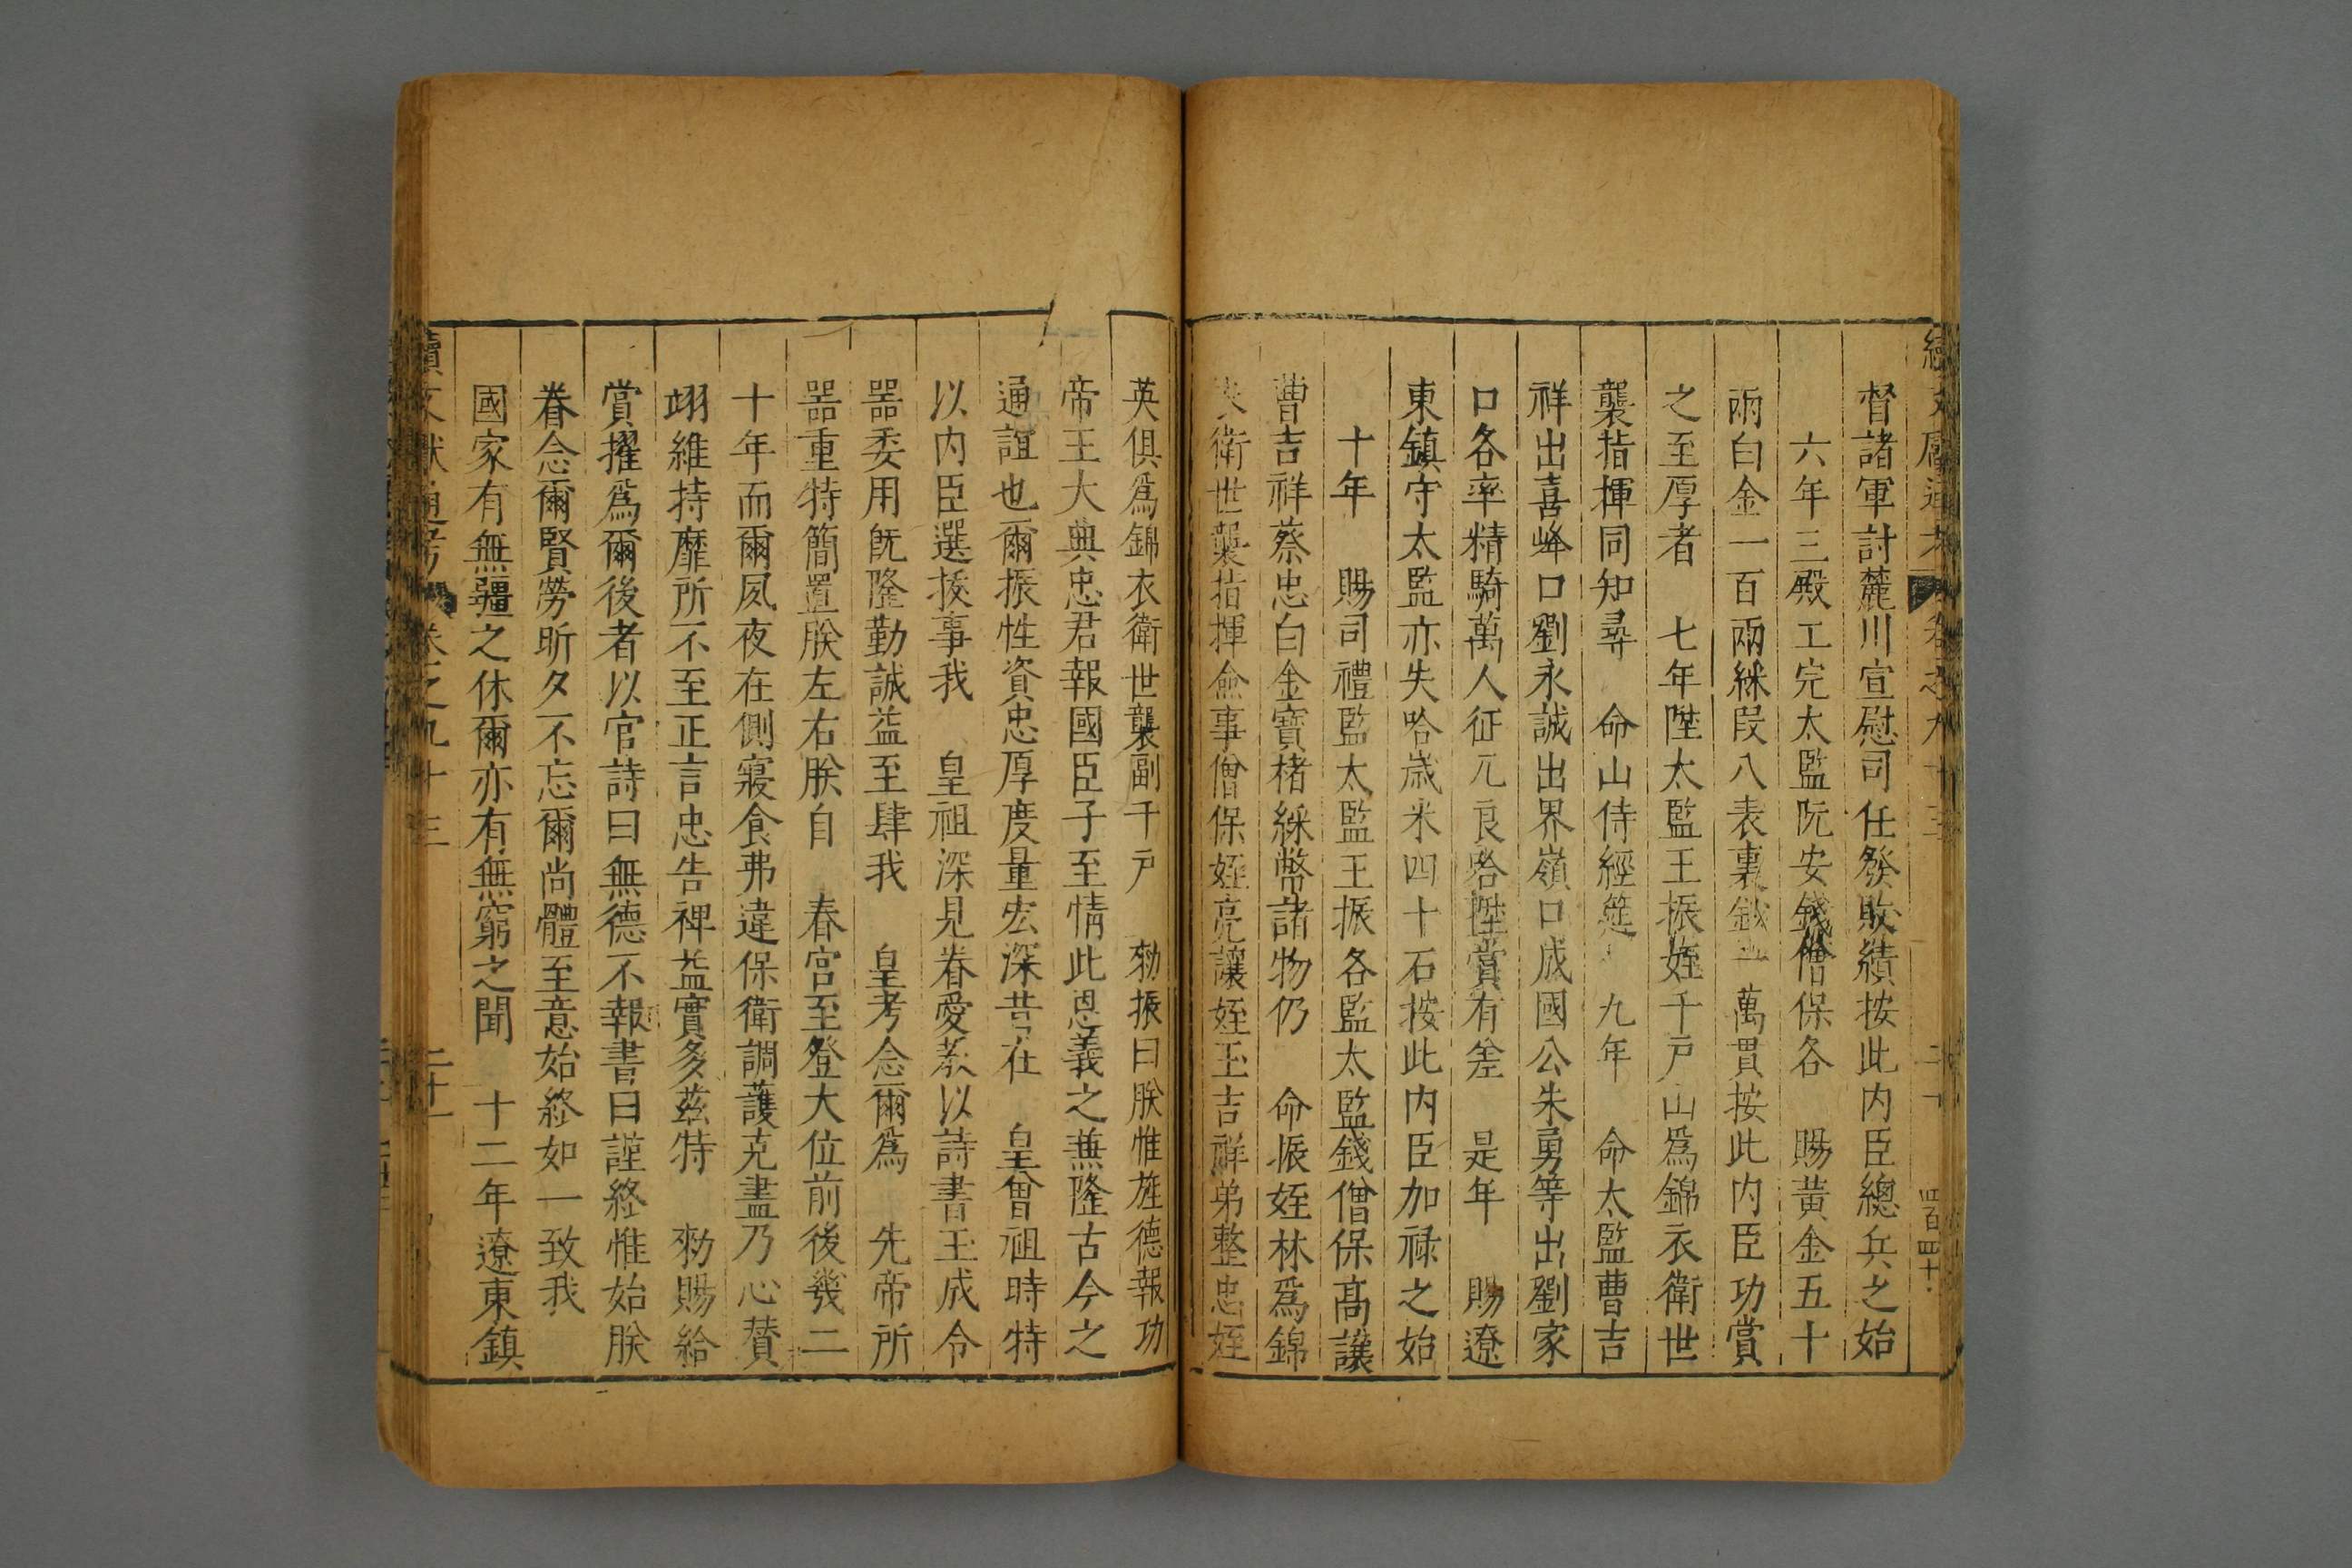 督諸軍討麓川宣慰司任發敗績按此内臣總兵之始
六年三殿工完太監阮安錢僧保各 賜黄金五十
兩白金一百兩綵段八表裏鈔一萬貫按此内臣功賞
之至厚者 七年陞太監王振姪千戸山爲錦衣衛世
襲指揮同知尋 命山侍經筵 九年 命太監曹吉
祥出喜峰口劉永誠出界嶺口成國公朱勇等出劉家
口各率精騎萬人征兀良哈陞賞有差 是年 賜遼
東鎮守太監亦失哈歳米四十石按此内臣加禄之始
十年 賜司禮監太監王振各監太監錢僧保髙讓
曹吉祥蔡忠白金寳楮綵幣諸物仍 命振姪林爲錦
衣衛世襲指揮僉事僧保姪亮讓姪玉吉祥弟整忠姪
英俱爲錦衣衛世襲副千戸 勑振曰朕惟旌德報功
帝王大典忠君報國臣子至情此恩義之兼隆古今之
通誼也爾振性資忠厚度量宏深昔在 皇曾祖時特
以内臣選拔事我 皇祖深見眷愛教以詩書玉成令
器委用旣隆勤誠益至肆我 皇考念爾爲 先帝所
器重特簡置朕左右朕自 春宮至登大位前後幾二
十年而爾夙夜在側寢食弗違保衛調護克盡乃心賛
翊維持靡所不至正言忠告裨益實多兹特 勑賜給
賞擢爲爾後者以官詩曰無德不報書曰謹終惟始朕
眷念爾賢勞昕夕不忘爾尚體至意始終如一致我
國家有無疆之休爾亦有無窮之聞 十二年遼東鎮
續文獻通考 卷之九十三 二十一